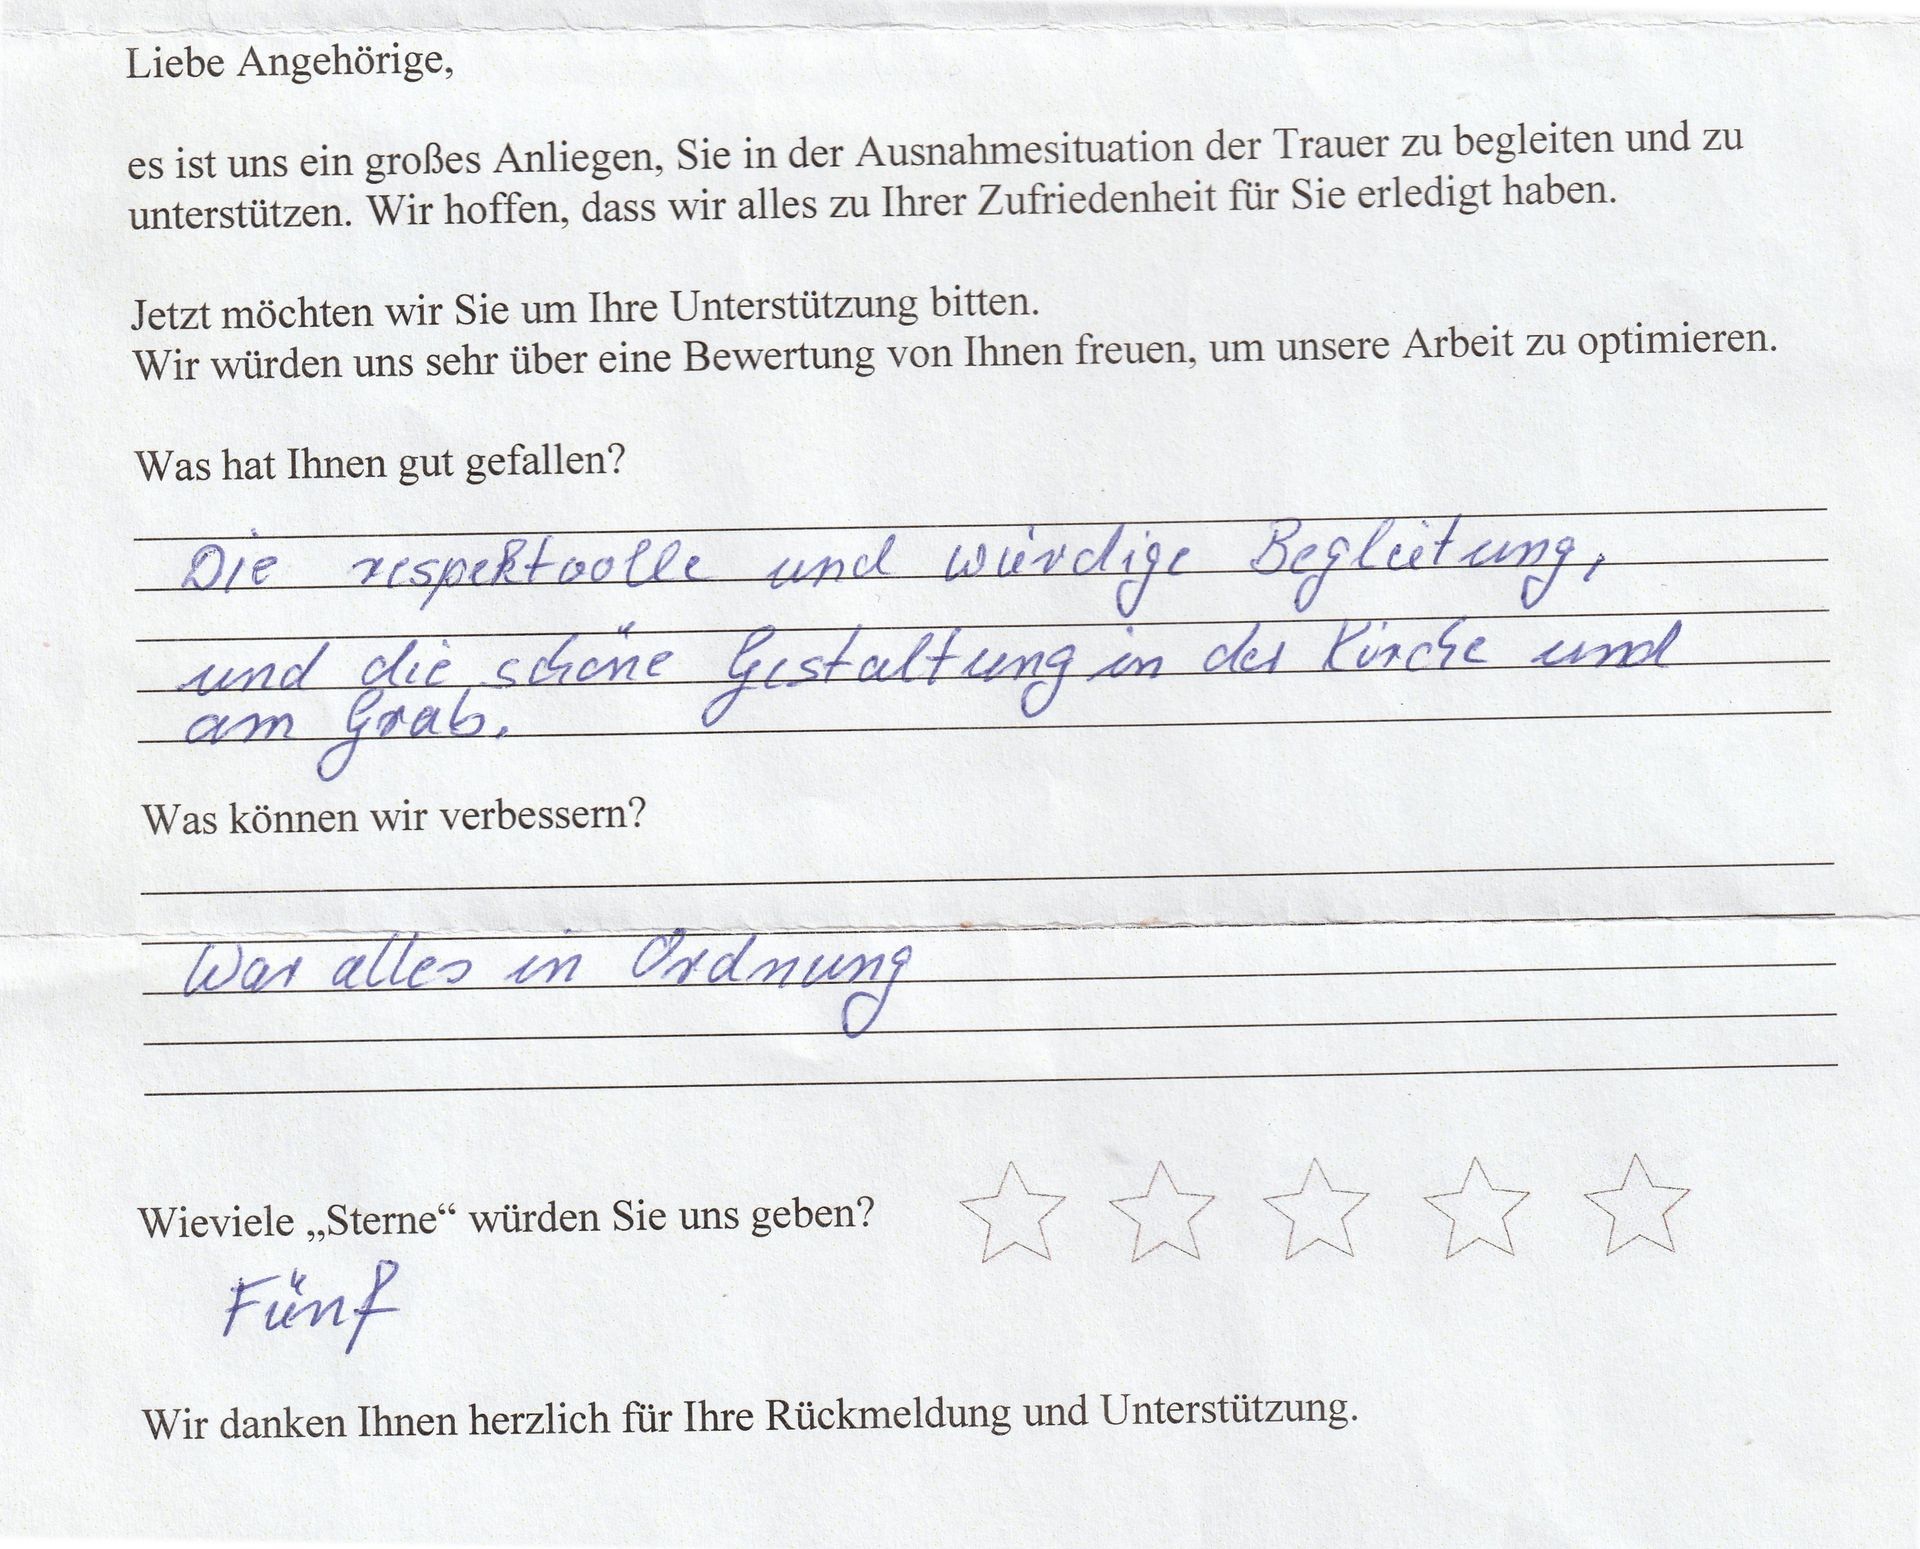 Liebe Angehörige,
es ist uns ein großes Anliegen, Sie in der Ausnahmesituation der Trauer zu begleiten und zu
unterstützen. Wir hoffen, dass wir alles zu Ihrer Zufriedenheit für Sie erledigt haben.
Jetzt möchten wir Sie um Ihre Unterstützung bitten.
Wir würden uns sehr über eine Bewertung von Ihnen freuen, um unsere Arbeit zu optimieren.
Was hat Ihnen gut gefallen?
Die respektvolle und würdige Begleitung,
und die schöne Gestaltung in der Kirche und
am Grab.
Was können wir verbessern?
War alles in Ordnung
Wieviele „Sterne“ würden Sie uns geben?
Fünf
Wir danken Ihnen herzlich für Ihre Rückmeldung und Unterstützung.